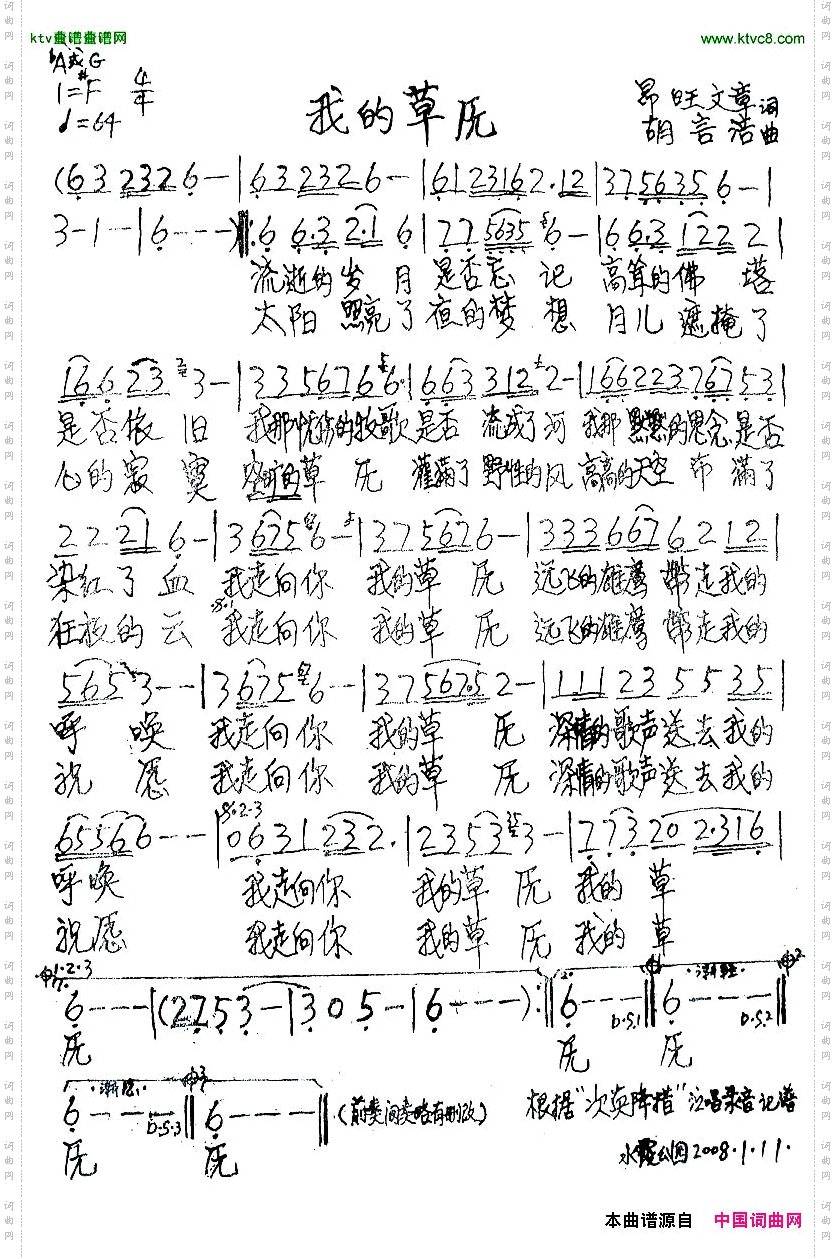 ktv曲谱曲谱网
www.ktvc8.com
bA或G
1=#F 4/4
♩=64
我的草原
昂旺文章词
胡言浩曲
(63 2326-|63 2326-|61 23162·12|37 56356-|
3-1--|6---):66·32·16|77 56356-|66·31222|
流逝的岁月是否忘记 高耸的佛塔
太阳照亮了夜的梦想 月儿遮掩了
166 233-|3356766·|6633122-|16622376753|
是否依旧 我那忧伤的牧歌是否 流成了河 我那默默的思念是否
心的寂寞 空旷的草原 灌满了野性的风 高高的天空 布满了
22 216-|36756--|3756726-|3336676212|
染红了血 我走向你 我的草原 远飞的雄鹰 带走我的
狂放的云 我走向你 我的草原 远飞的雄鹰 带走我的
5653--|36756--|37567·52-|1112355 35|
呼唤 我走向你 我的草原 深情的歌声送去我的
祝愿 我走向你 我的草原 深情的歌声送去我的
65566--|0631232·|23533-|77·3202·316|
呼唤 我走向你 我的草原 我的草
祝愿 我走向你 我的草原 我的草
1·2·3
6---|(2753-|305-|6---):6---D.S.1 6---D.S.2
原 原 原
6---D.S.3 6--- (前奏间奏略有删改)
根据"次央降措"演唱录音记谱
原 原
2008.1.11.
本曲谱源自 中国词曲网
词曲网